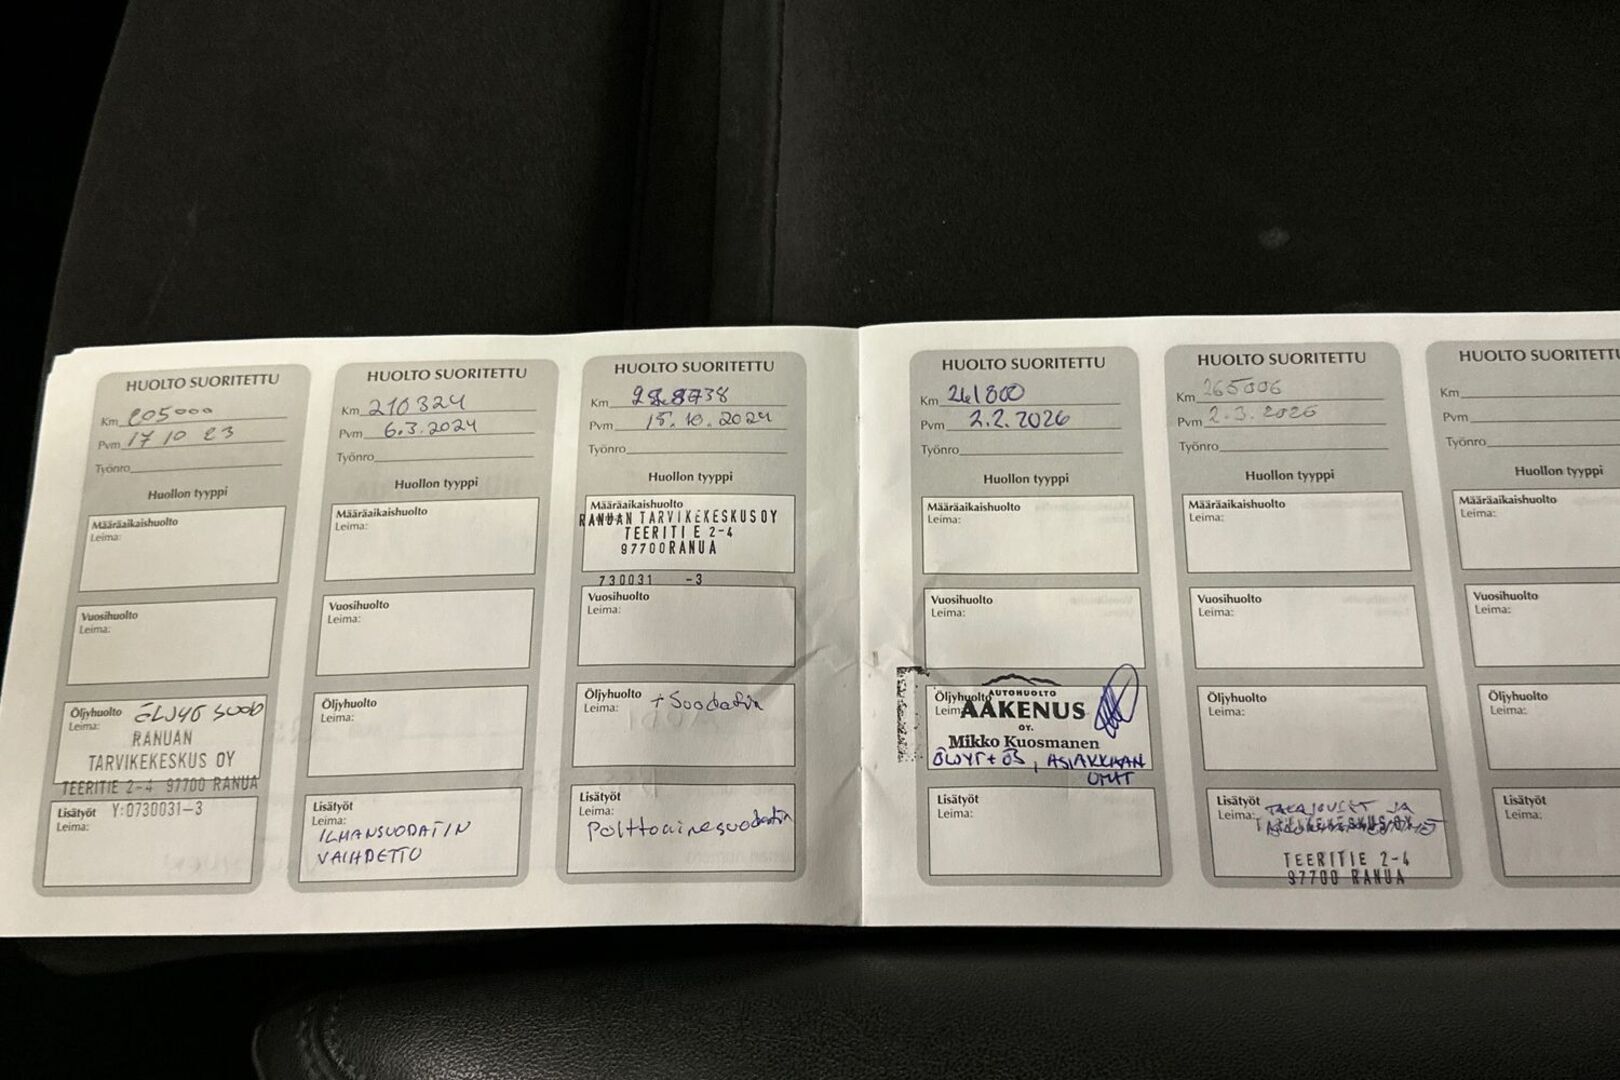 HUOLTO SUORITETTU
Km 205000
Pvm 17 10 23
Työnro
Huollon tyyppi
Määräaikaishuolto
Leima:
Vuosihuolto
Leima:
Öljyhuolto ÖLJYT SUOD
Leima:
RANUAN
TARVIKEKESKUS OY
TEERITIE 2-4 97700 RANUA
Lisätyöt Y:0730031-3
Leima:
HUOLTO SUORITETTU
Km 210324
Pvm 6.3.2024
Työnro
Huollon tyyppi
Määräaikaishuolto
Leima:
Vuosihuolto
Leima:
Öljyhuolto
Leima:
Lisätyöt
Leima:
ILMANSUODATIN
VAIHDETTO
HUOLTO SUORITETTU
Km
Pvm 15.10.2024
Työnro
Huollon tyyppi
Määräaikaishuolto
RANUAN TARVIKEKESKUS OY
TEERITIE 2-4
97700 RANUA
730031 -3
Vuosihuolto
Leima:
Öljyhuolto
Leima: + Suodatin
Lisätyöt
Leima:
Polttoainesuodatin
HUOLTO SUORITETTU
Km 261800
Pvm 2.2.2026
Työnro
Huollon tyyppi
Määräaikaishuolto
Leima:
Vuosihuolto
Leima:
Öljyhuolto AUTOHUOLTO
Leim ÄÄKENUS
OY.
Mikko Kuosmanen
ÖLJYT + ÖS, ASIAKKAAN
OMAT
Lisätyöt
Leima:
HUOLTO SUORITETTU
Km 265006
Pvm 2.3.2026
Työnro
Huollon tyyppi
Määräaikaishuolto
Leima:
Vuosihuolto
Leima:
Öljyhuolto
Leima:
Lisätyöt TAKAJOUSET JA
Leima: TARVIKEKESKUS OY
TEERITIE 2-4
97700 RANUA
HUOLTO SUORITETTU
Km
Pvm
Työnro
Huollon tyyppi
Määräaikaishuolto
Leima:
Vuosihuolto
Leima:
Öljyhuolto
Leima:
Lisätyöt
Leima: